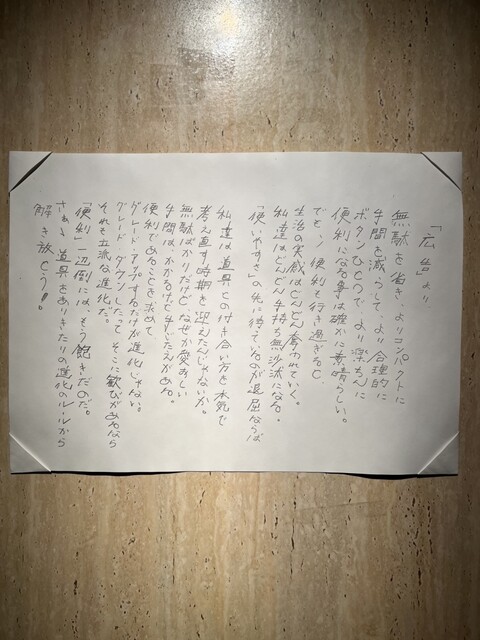 「広告」より
無駄を省き、よりコンパクトに
手間を減らして、より合理的に
ボタンひとつで、より楽ちんに
便利になる事は確かに素晴らしい。
でも、、便利も行き過ぎると
生活の実感はどんどん奪われていく。
私達はどんどん手持ち無沙汰になる。
「使いやすさ」の先に待っているのが退屈ならば
私達は道具との付き合い方を本気で
考え直す時期を迎えたんじゃないか。
無駄ばかりだけど、なぜか愛おしい
手間は、かかるけど手ごたえがある。
便利であることを求めて
グレード・アップするだけが進化じゃない。
グレード・ダウンしたって そこに歓びがあるなら
それも立派な進化だ。
「便利」一辺倒には、もう飽きたのだ。
さぁ、道具をありきたりの進化のルールから
解き放とう!!